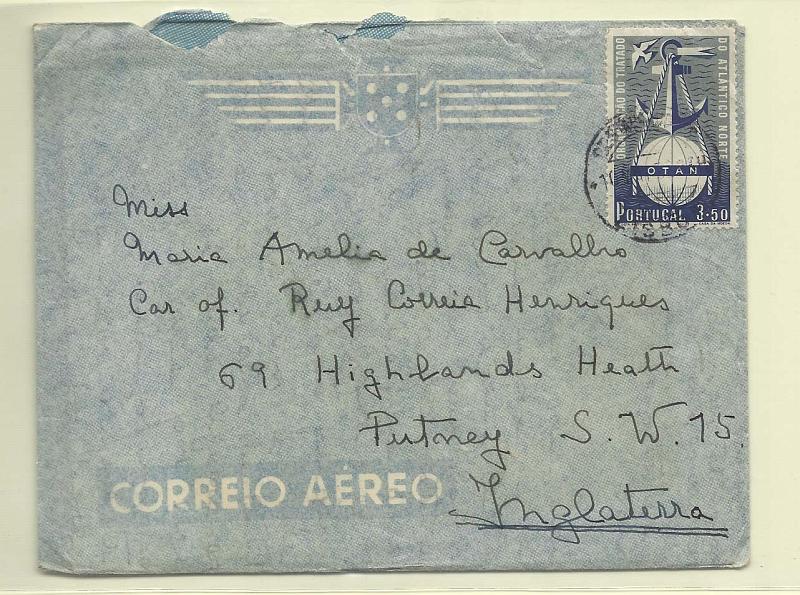 ORGANIZAÇÃO DO TRATADO
DO ATLÂNTICO NORTE
OTAN
PORTUGAL 3·50
Miss
Maria Amelia de Carvalho
Car of. Ruy Correia Henriques
69 Highlands Heath
Putney S.W.15.
Inglaterra
CORREIO AÉREO